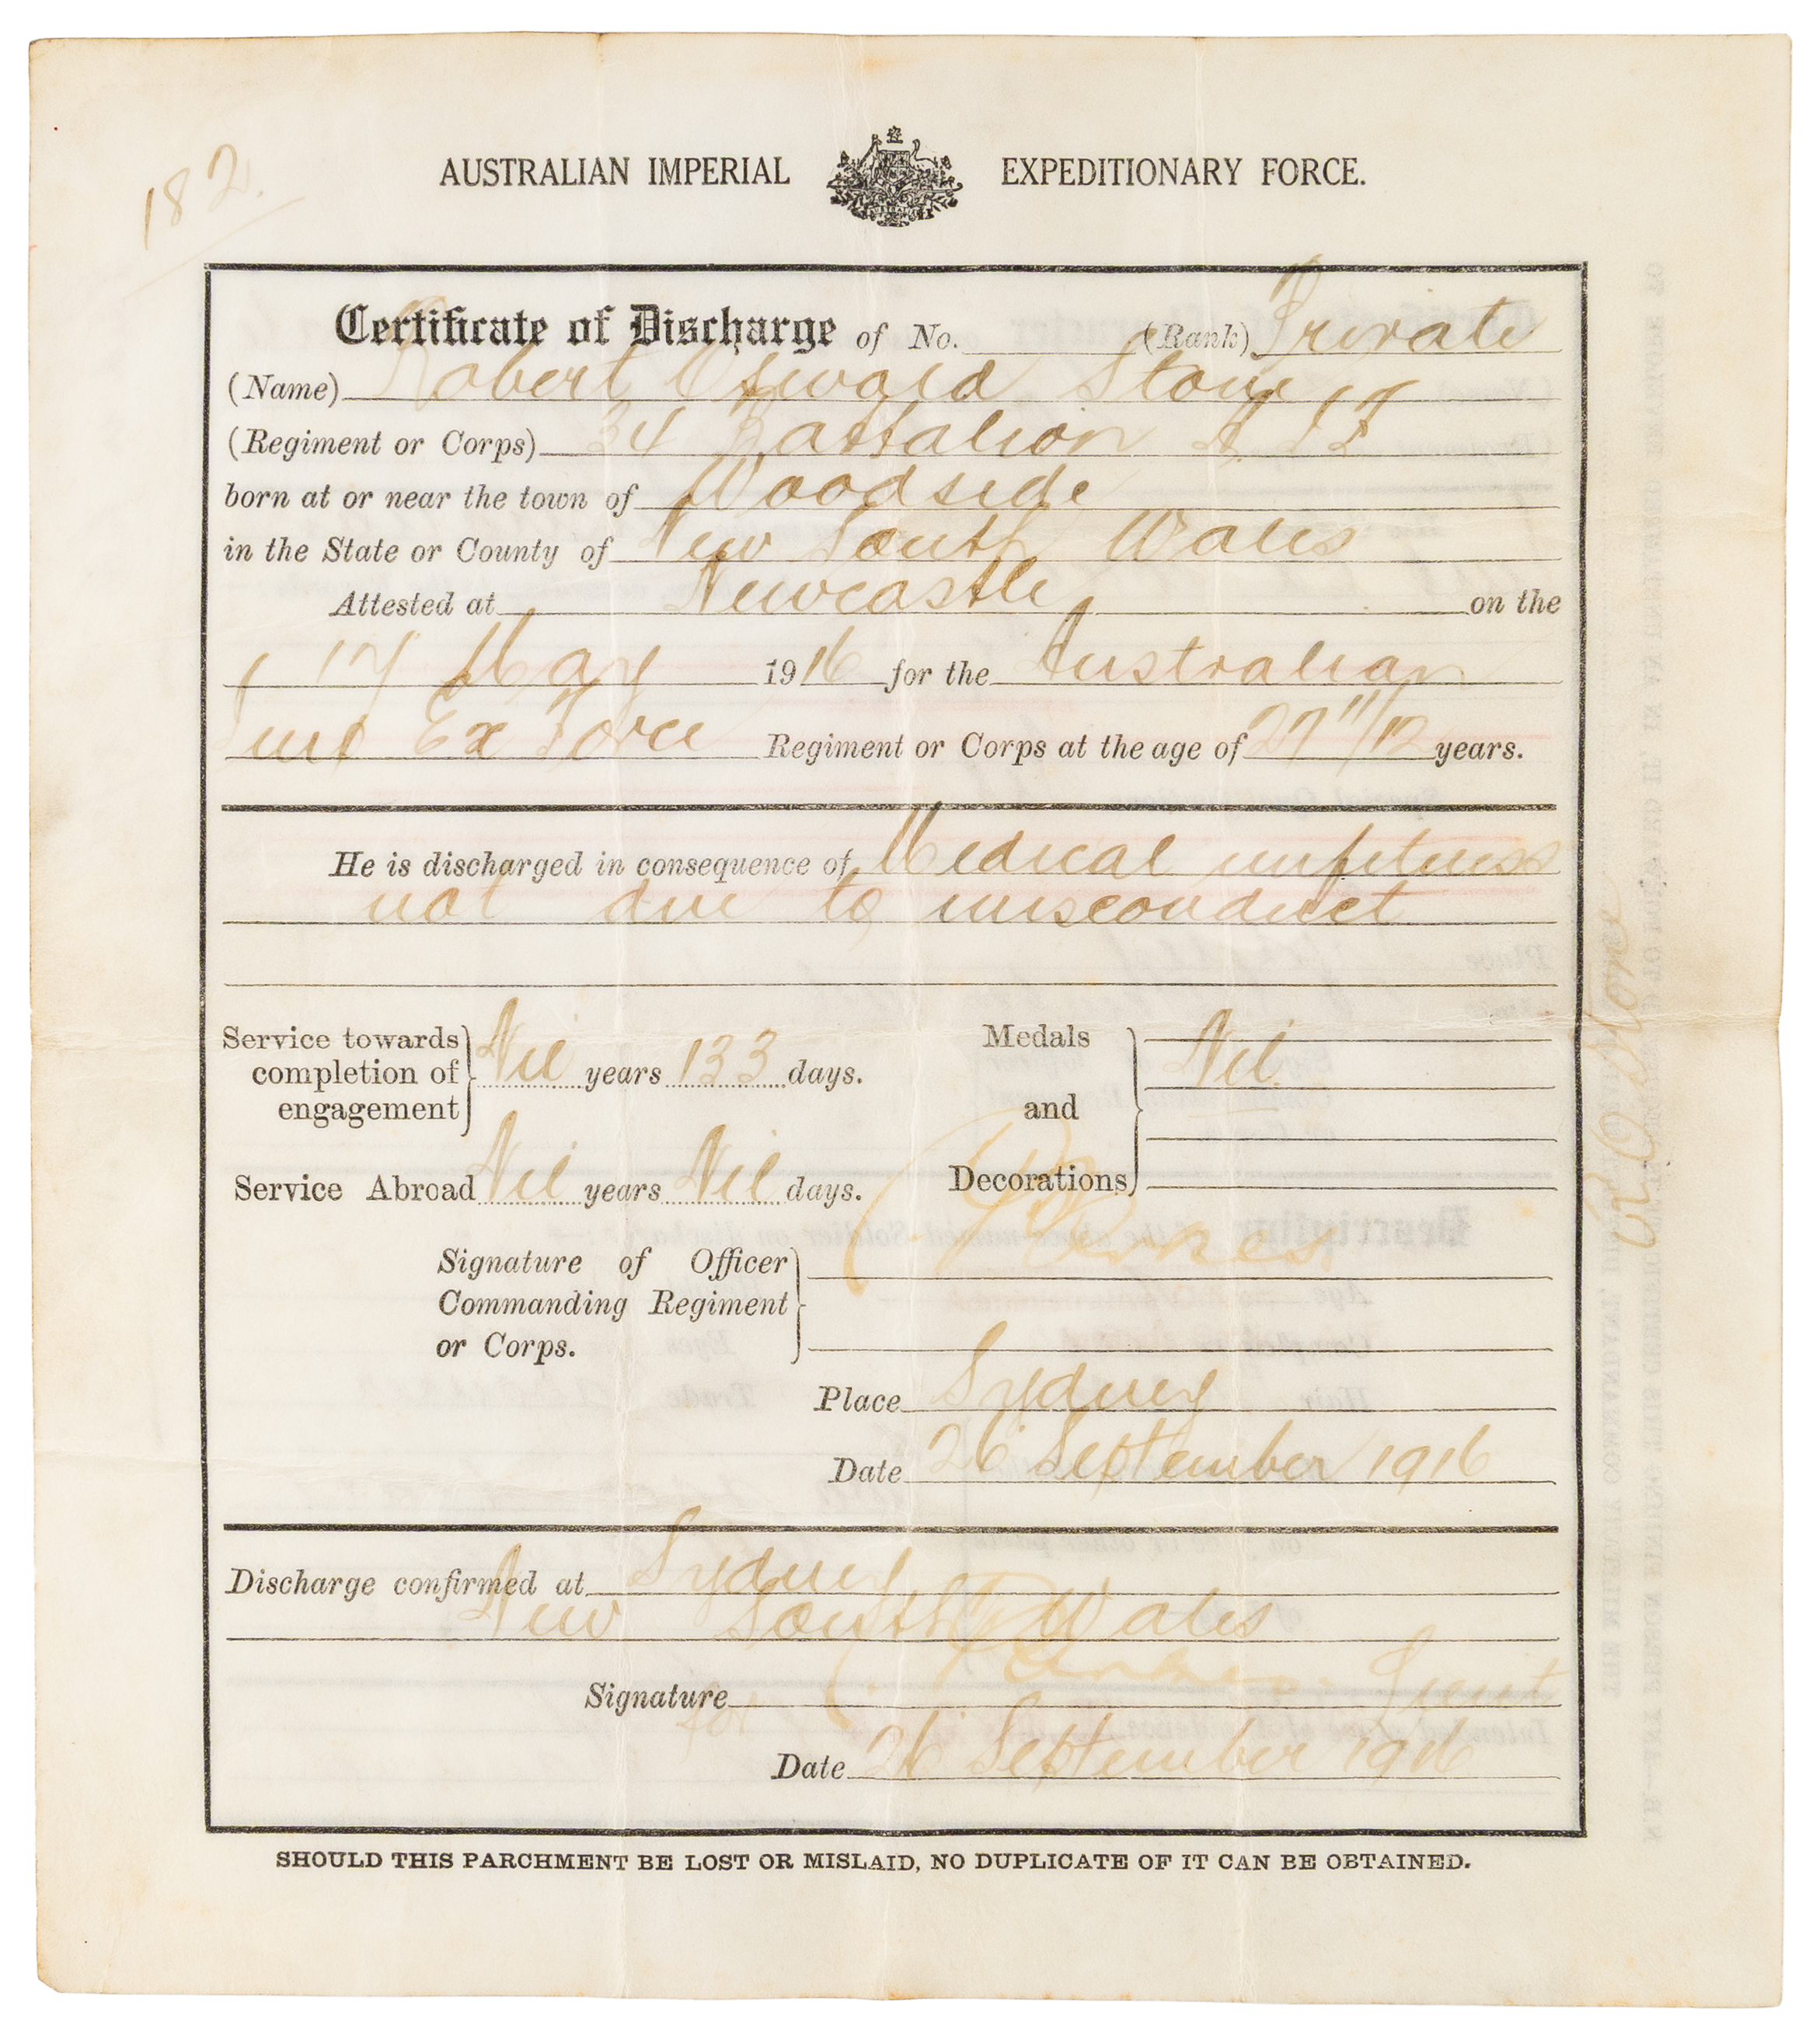 182.
AUSTRALIAN IMPERIAL EXPEDITIONARY FORCE.
Certificate of Discharge of No. (Rank) Private
(Name) Robert Oswald Stone
(Regiment or Corps) 34 Battalion A I F
born at or near the town of Woodside
in the State or County of New South Wales
Attested at Newcastle on the
17 May 1916 for the Australian
Imp Ex Force Regiment or Corps at the age of 27 11/12 years.
He is discharged in consequence of Medical unfitness
not due to misconduct
Service towards completion of engagement Nil years 133 days.
Medals and Decorations Nil
Service Abroad Nil years Nil days.
Signature of Officer
Commanding Regiment
or Corps.
Place Sydney
Date 26 September 1916
Discharge confirmed at Sydney
New South Wales
Signature Lieut
for
Date 26 September 1916
SHOULD THIS PARCHMENT BE LOST OR MISLAID, NO DUPLICATE OF IT CAN BE OBTAINED.
R. O. Stone